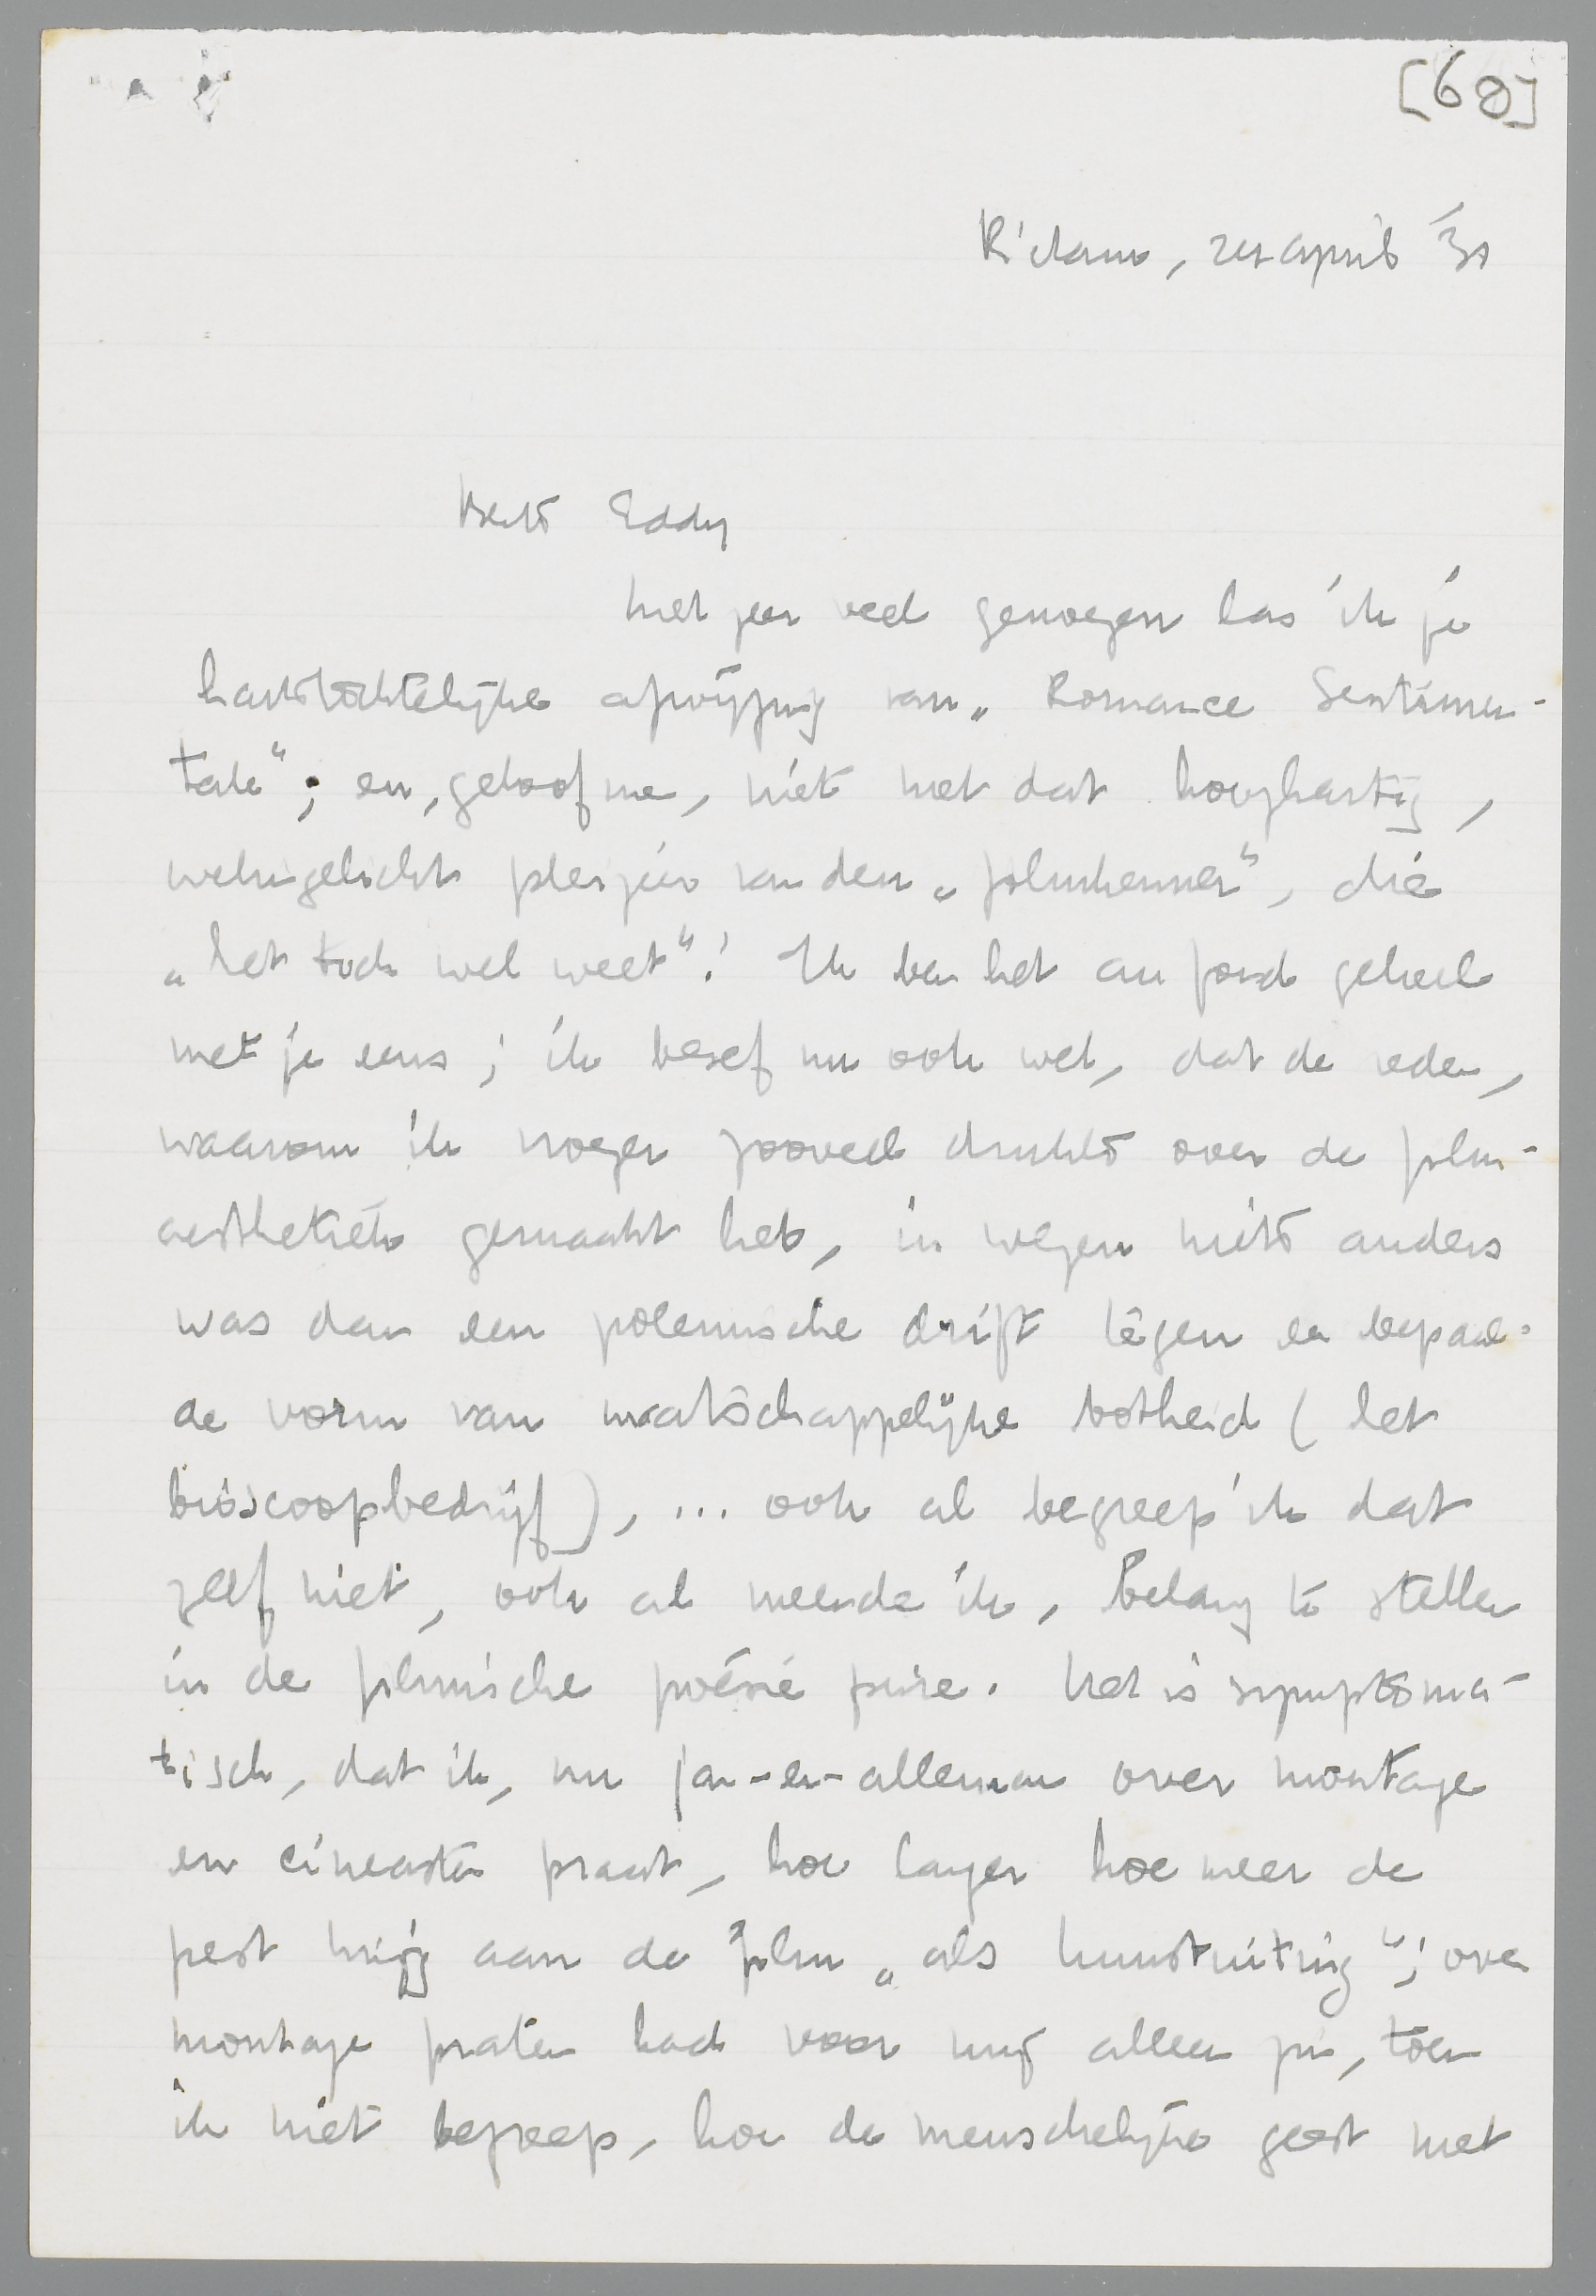 [60]
R'dam, 21 april '31
Beste Eddy
Met zeer veel genoegen las ik je
hartstochtelijke afwijzing van „Romance Sentimen-
tale"; en, geloof me, niet met dat hooghartig,
welingelicht plezier van den „filmkenner", die
„het toch wel weet"! Ik ben het au fond geheel
met je eens; ik besef nu ook wel, dat de reden,
waarom ik vroeger zooveel drukte over de film-
aesthetiek gemaakt heb, in wezen niets anders
was dan een polemische drift tégen een bepaal-
de vorm van maatschappelijke botheid (het
bioscoopbedrijf), ... ook al begreep ik dat
zelf niet, ook al meende ik, belang te stellen
in de filmische poésie pure. Het is symptoma-
tisch, dat ik, nu jan-en-alleman over montage
en cineasten praat, hoe langer hoe meer de
pest krijg aan de film „als kunstuiting"; over
montage praten had voor mij alleen zin, toen
ik niet begreep, hoe de menschelijke geest met